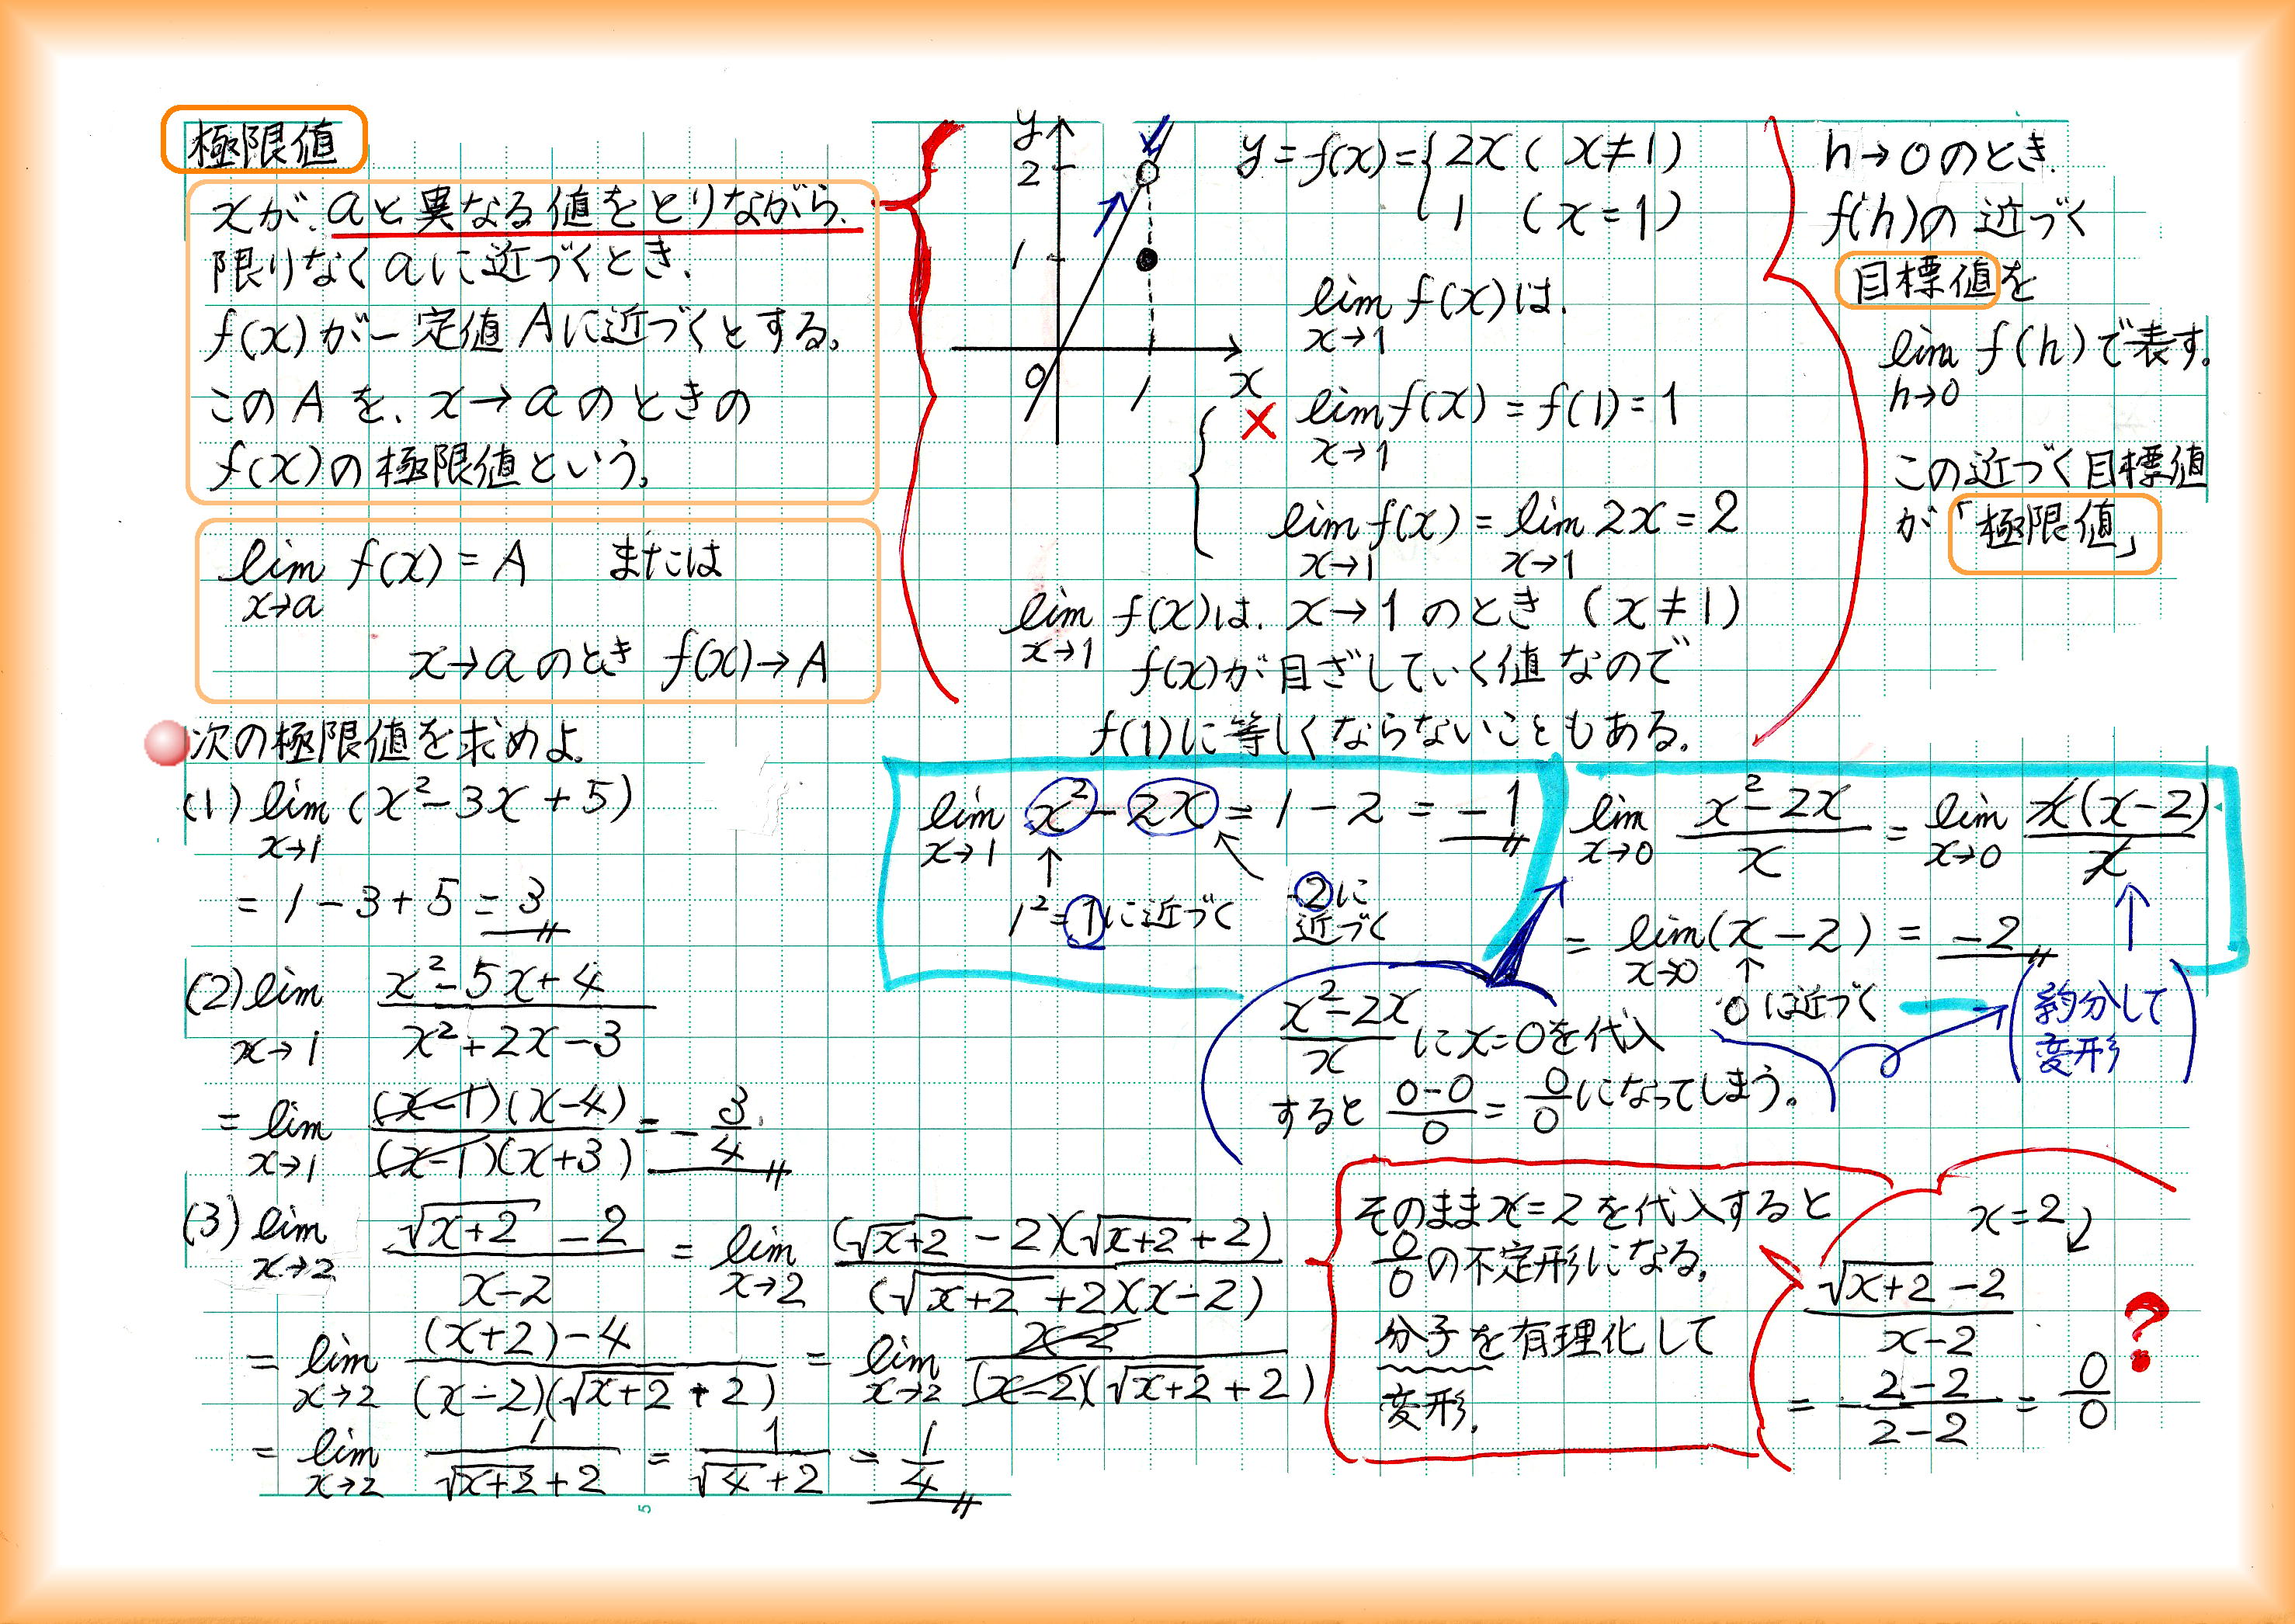 極限値
xが、aと異なる値をとりながら、
限りなくaに近づくとき、
f(x)が一定値Aに近づくとする。
このAを、x→aのときの
f(x)の極限値という。
lim f(x) = A または
x→a
x→aのとき f(x)→A
y
2
1
0
1
x
y = f(x) = { 2x ( x≠1)
1 ( x=1)
lim f(x)は、
x→1
× lim f(x) = f(1) = 1
x→1
lim f(x) = lim 2x = 2
x→1 x→1
lim f(x)は、x→1のとき (x≠1)
x→1
f(x)が目ざしていく値なので
f(1)に等しくならないこともある。
h→0のとき、
f(h)の近づく
目標値を
lim f(h)で表す。
h→0
この近づく目標値
が「極限値」
次の極限値を求めよ。
(1) lim (x²-3x+5)
x→1
= 1-3+5 = 3
(2) lim (x²-5x+4)/(x²+2x-3)
x→1
= lim (x-1)(x-4)/(x-1)(x+3) = -3/4
x→1
(3) lim (√(x+2) -2)/(x-2) = lim (√(x+2) -2)(√(x+2) +2)/(√(x+2) +2)(x-2)
x→2 x→2
= lim ((x+2)-4)/(x-2)(√(x+2) +2) = lim (x-2)/(x-2)(√(x+2) +2)
x→2 x→2
= lim 1/(√(x+2) +2) = 1/(√4 +2) = 1/4
x→2
lim x² - 2x = 1-2 = -1
x→1
1²=1に近づく
-2に
近づく
lim (x²-2x)/x = lim x(x-2)/x
x→0 x→0
= lim (x-2) = -2
x→0
0に近づく
(約分して
変形)
(x²-2x)/x にx=0を代入
すると (0-0)/0 = 0/0 になってしまう。
そのままx=2を代入すると
0/0の不定形になる。
分子を有理化して
変形。
x=2
(√(x+2) -2)/(x-2)
= (2-2)/(2-2) = 0/0 ?
5